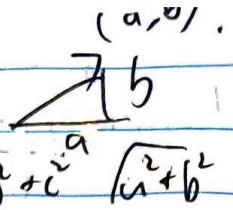 (a,b).
b
a
² + c² √a² + b²